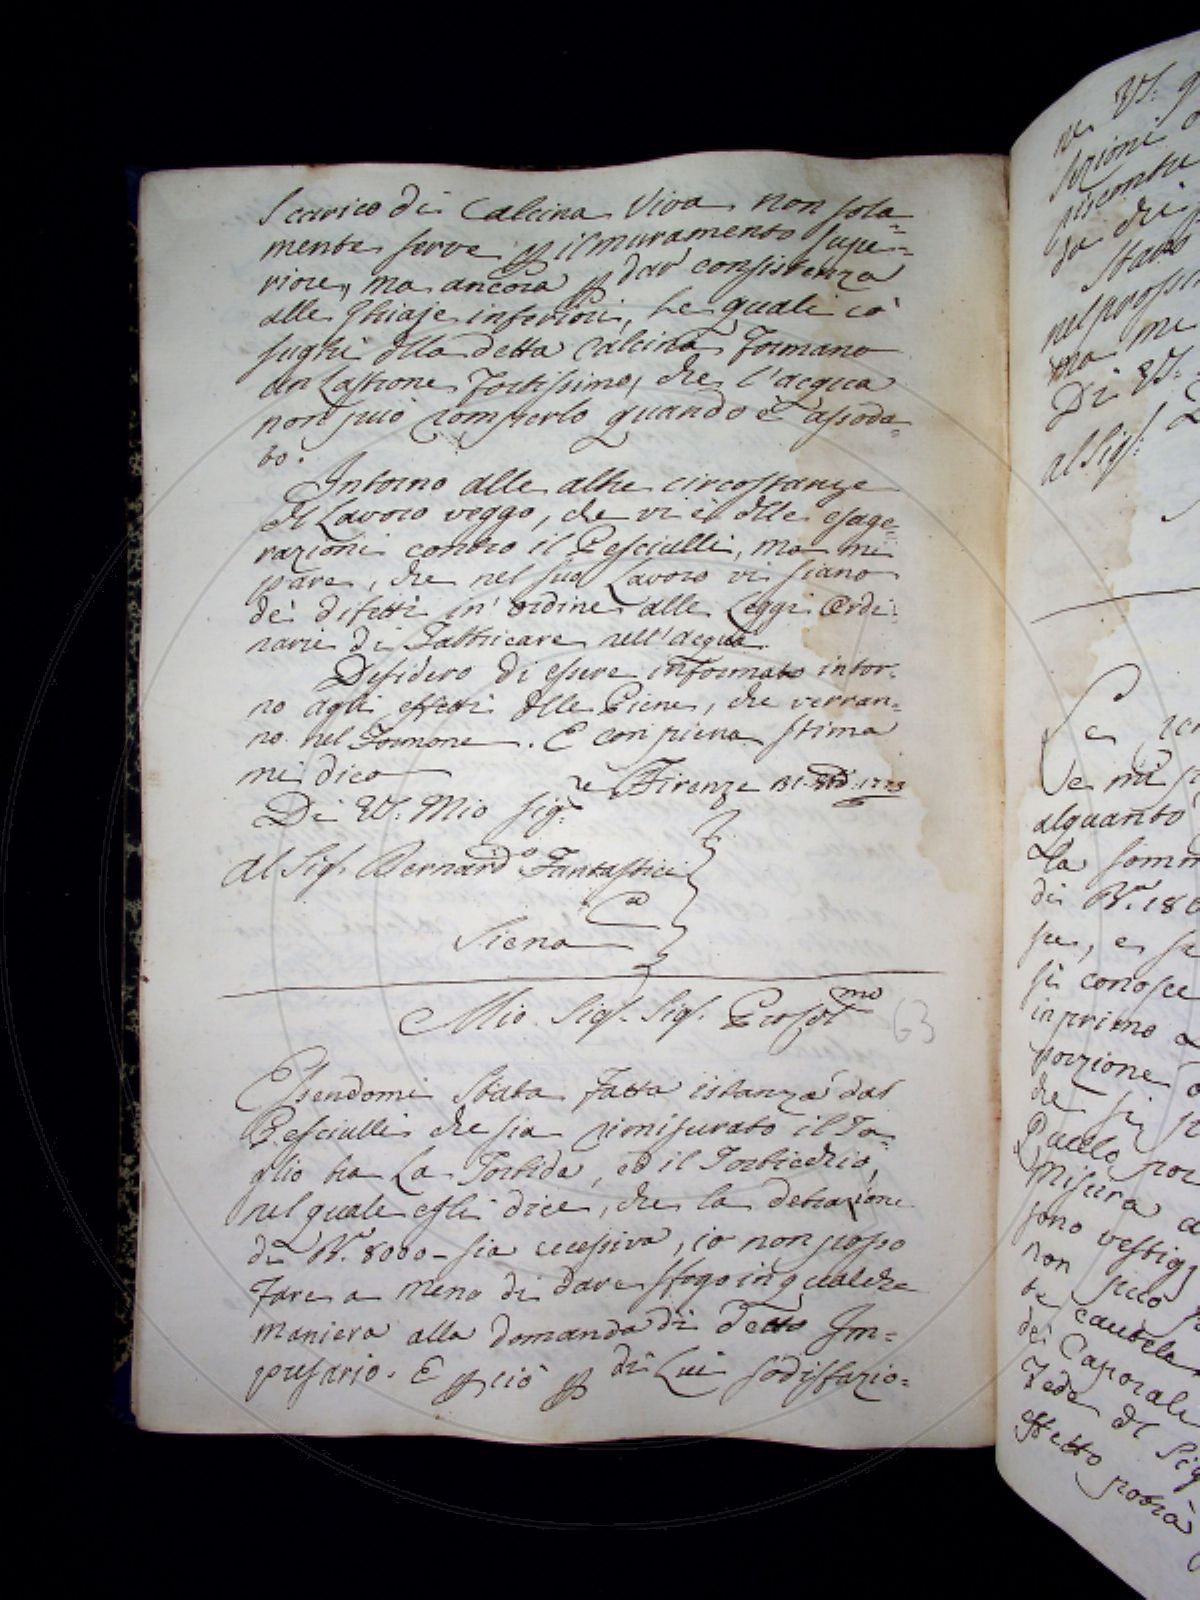 Scarico di Calcina Viva non sola=
mente serve p il muramento supe=
riore, ma ancora p dar consistenza
alle Ghiaje inferiori, Le quali cò
sughi dlla detta Calcina Formano
un Lastrone Fortissimo, che l'acqua
non può romperlo quando è assoda=
to.
Intorno alle altre circostanze
dl Lavoro veggo, che vi è dlle esage=
razioni contro il Pesciulli, ma mi
pare, che nel suo Lavoro vi siano
de' difetti in ordine alle Leggi Ordi=
narie di Fabbricare nell'acqua.
Desidero di essere informato intor=
no agli effetti dlle Piene, che verran=
no nel Fornone. E con piena stima
mi dico
Firenze 31. 1773
Di VS. Mio Sig.re
Al Sig. Bernard.o Fantastici
Siena
Mio Sig. Sig. Prosol mo
63
Essendomi Stata Fatta istanza dal
Pesciulli che sia rimisurato il Ta=
glio tra La Torbida, ed il Torbicchio,
nel quale esli dice, che la detrazione
di Br. 8000 - sia eccessiva, io non posso
Fare a meno di dare sfogo in qualche
maniera alla domanda di Detto Im=
presario. E p ciò p di Lui sodisfazio=
ne VS.
al Sig.
alquanto
La somm
si conosce
in primo
porzione
che si
Misura
non può
cautela
dei Caporali
Fede dl Sig
effetto potrà